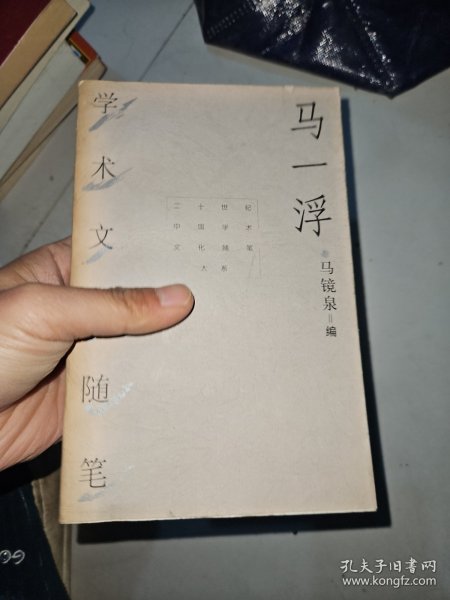 马一浮
马镜泉 编
二十世纪
中国学术
文化随笔
大系
学术文
随笔
孔夫子旧书网
www.kongfz.com